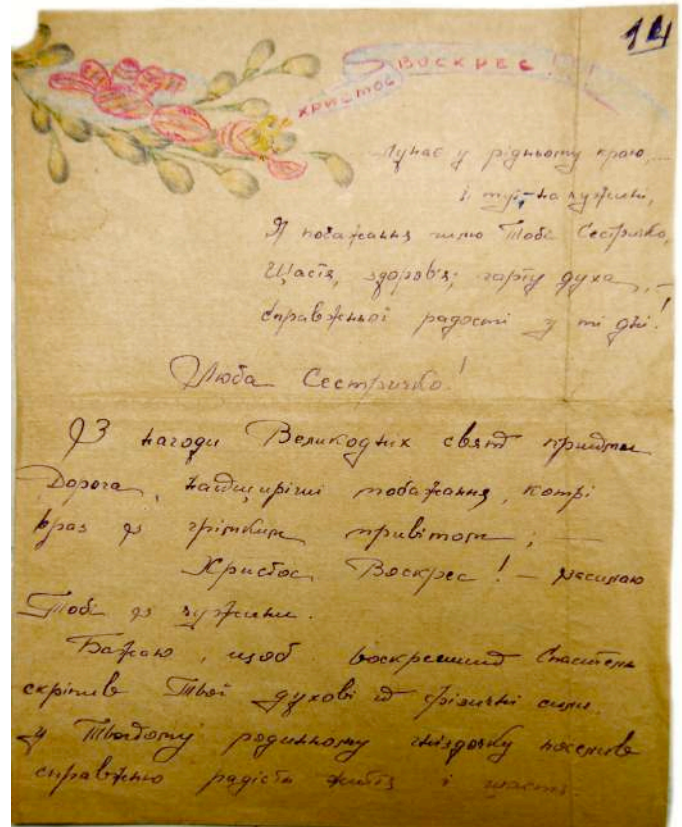 14
ХРИСТОС ВОСКРЕС!
Лунає у рідньому краю,...
і тут, на чужині,
Я побажання шлю Тобі Сестричко,
Щастя, здоров'я, гарту духа, –
справжньої радості у ті дні!
Люба Сестричко!
З нагоди Великодних свят прийми
Дорога, найщиріші побажання, котрі
враз з грімким привітом; —
Христос Воскрес! – засилаю
Тобі з чужини.
Бажаю, щоб воскресший Спаситель
скріпив Твої духові й фізичні сили.
у Твойому родинному гніздочку поселив
справжню радість життя і щастя